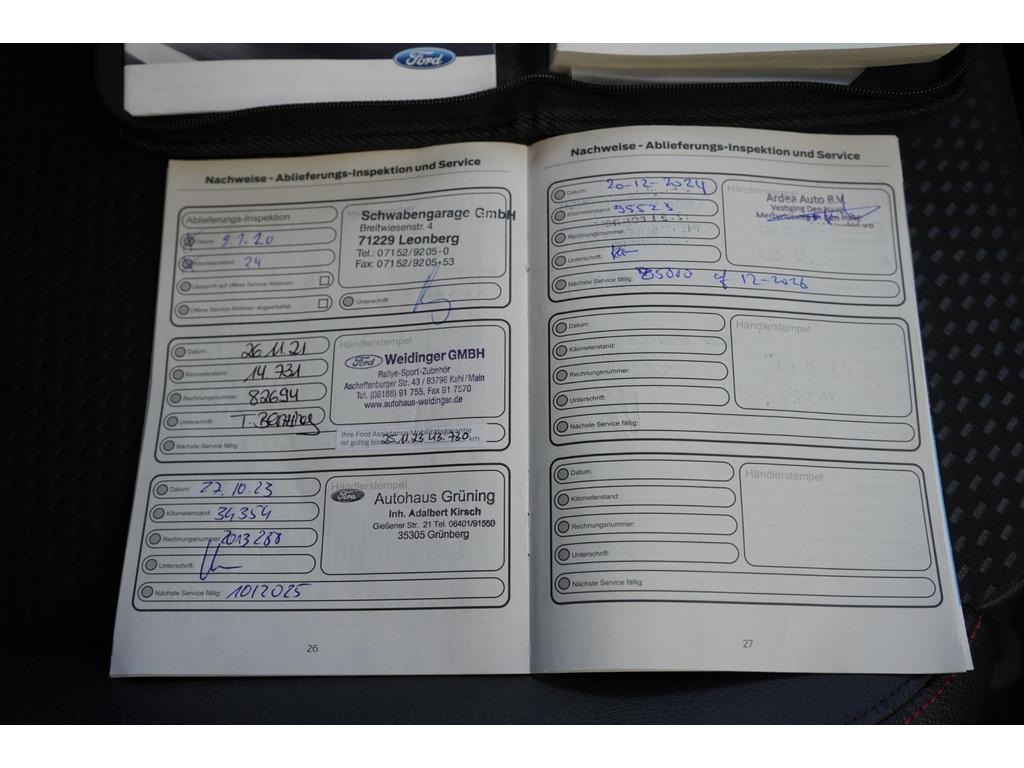 Ford
Nachweise - Ablieferungs-Inspektion und Service
Ablieferungs-Inspektion
Schwabengarage GmbH
Breitwiesenstr. 4
71229 Leonberg
Tel.: 07152/9205-0
Fax: 07152/9205-53
Datum: 9.1.20
Kilometerstand: 24
Überprüft auf offene Service Aktionen:
Offene Service Aktionen abgearbeitet:
Unterschrift:
Datum: 26.11.21
Kilometerstand: 14 731
Rechnungsnummer: 82694
Unterschrift:
Nächste Service fällig:
Händlerstempel
Ford Weidinger GMBH
Rallye-Sport-Zubehör
Aschaffenburger Str. 43 / 63796 Kahl/Main
Tel. (06188) 91 755, Fax 91 7570
www.autohaus-weidinger.de
Ihre Ford Assistance Mobilitätsgarantie
ist gültig bis 25.11.23 43.730 km
Datum: 27.10.23
Kilometerstand: 34354
Rechnungsnummer: 2013288
Unterschrift:
Nächste Service fällig: 10/2025
Händlerstempel
Ford Autohaus Grüning
Inh. Adalbert Kirsch
Gießener Str. 21 Tel. 06401/91550
35305 Grünberg
26
Nachweise - Ablieferungs-Inspektion und Service
Datum: 20-12-2024
Kilometerstand: 35523
Rechnungsnummer:
Unterschrift:
Nächste Service fällig: 55000 of 12-2026
Händlerstempel
Ardea Auto B.V.
Vestiging Den Haag
Datum:
Kilometerstand:
Rechnungsnummer:
Unterschrift:
Nächste Service fällig:
Händlerstempel
Datum:
Kilometerstand:
Rechnungsnummer:
Unterschrift:
Nächste Service fällig:
Händlerstempel
27